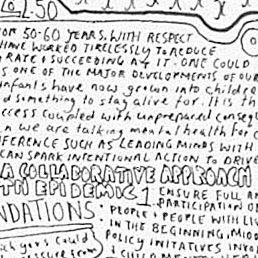 2:50
OR 50-60 YEARS. WITH RESPECT
HAVE WORKED TIRELESSLY TO REDUCE
RATE & SUCCEEDING AT IT. ONE COULD
IS ONE OF THE MAJOR DEVELOPMENTS OF OUR
infants have now grown into childre
d something to stay alive for. It is th
ccess coupled with unprepared conseq
n we are talking mental health for c
FERENCE SUCH AS LEADING MINDS WITH
CAN SPARK INTENTIONAL ACTION TO DRIVE
A COLLABORATIVE APPROACH
TH EPIDEMIC
1 ENSURE FULL AN
PARTICIPATION O
NDATIONS:
PEOPLE & PEOPLE WITH LIV
IN THE BEGINNING, MIDD
POLICY INITATIVES INVO
ch you could